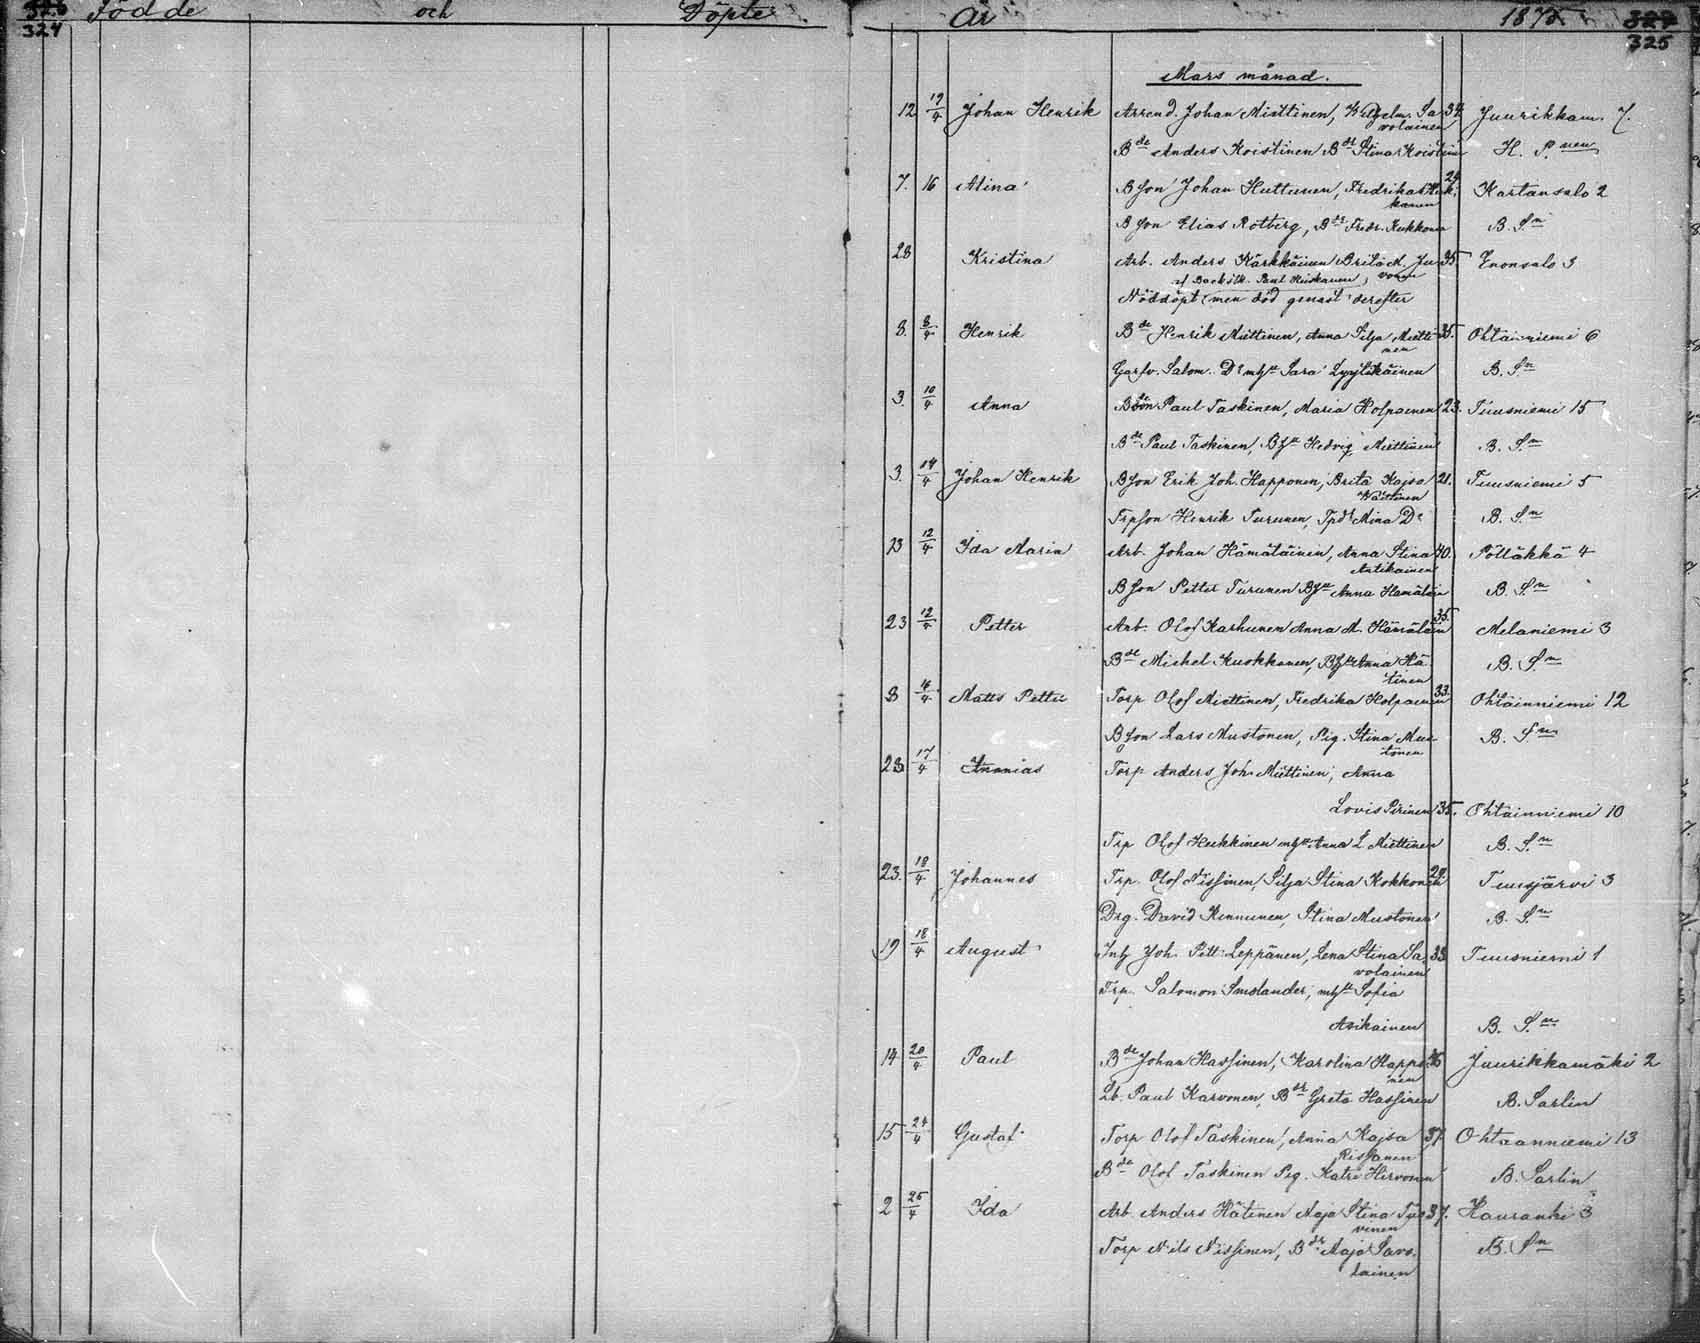 324
Födde och Döpte
År 1875
325
Mars månad.
12 19/4 Johan Henrik Arrend. Johan Miettinen, Wilhelm. Sa 34. Juurikkam. 7.
volainen
Bde Anders Koistinen Bdr Stina Koistinen H. P.nen
7. 16 Alina BSon Johan Huttunen, Fredrika 24 Kartansalo 2
kanen
BSon Elias Rotberg, Bdr Fredr. Kukkonen B. Sn
28 Kristina Arb. Anders Kärkkäinen Brita M. Ju 35 Enonsalo 3
af Backstk. Paul Heiskanen, vonen
Nöddöpt men död genast derefter
8. 8/4 Henrik Bde Henrik Miettinen, Anna Silja Mietti 35. Ohtainniemi 6
nen
Garfv. Salom. Do mhu Sara Lyytikäinen B. Sn
3. 10/4 Anna BSon Paul Taskinen, Maria Holpainen 23. Tuusniemi 15
Bde Paul Taskinen, Bhu Hedvig Miettinen B. Sn
3. 14/4 Johan Henrik BSon Erik Joh. Happonen, Brita Kajsa 21. Tuusniemi 5
Wättinen
TrpSon Henrik Turunen, Tpdr Mina Do B. Sn
23 12/4 Ida Maria Arb. Johan Hämäläinen, Anna Stina 40. Pölläkkä 4
Antikainen
BSon Petter Turunen Bhu Anna Hämäläin B. Sn
23 12/4 Petter Arb. Olof Karhunen Anna M. Hämäläin 35. Melaniemi 3
Bde Michel Kuokkanen, Bhu Anna Hä B. Sn
tinen
8 4/4 Matts Petter Torp Olof Miettinen, Fredrika Holpainen 33. Ohtäinniemi 12
BSon Lars Mustonen, Pig. Stina Mus B. Sn
tonen
23 17/4 Ananias Torp Anders Joh. Miettinen, Anna
Lovis Pirinen 35. Ohtäinniemi 10
Trp Olof Heikkinen mhu Anna L Miettinen B. Sn
23. 18/4 Johannes Trp. Olof Nissinen, Silja Stina Kokkonen 29. Tuusjärvi 3
Drg. David Kinnunen, Stina Mustonen B. Sn
19 18/4 August Inh Joh. Pett. Leppänen, Lena Stina Sa 33 Tuusniemi 1
volainen
Trp. Salomon Smolander, mhu Sofia
Asikainen B. Sn
14 20/4 Paul Bde Johan Hassinen, Karolina Happo 36 Juurikkamäki 2
nen
Lb. Paul Karvonen, Bdr Greta Hassinen B. Sarlin
15 24/4 Gustaf Torp Olof Taskinen, Anna Kajsa 37 Ohtaanniemi 13
Rissanen
Bde Olof Taskinen Pig. Katri Hirvonen B. Sarlin
2 25/4 Ida Arb. Anders Hätinen Maja Stina 37. Kauranki 3
vinen
Torp Nils Nissinen, Bdr Maja Savo B. Sn
lainen